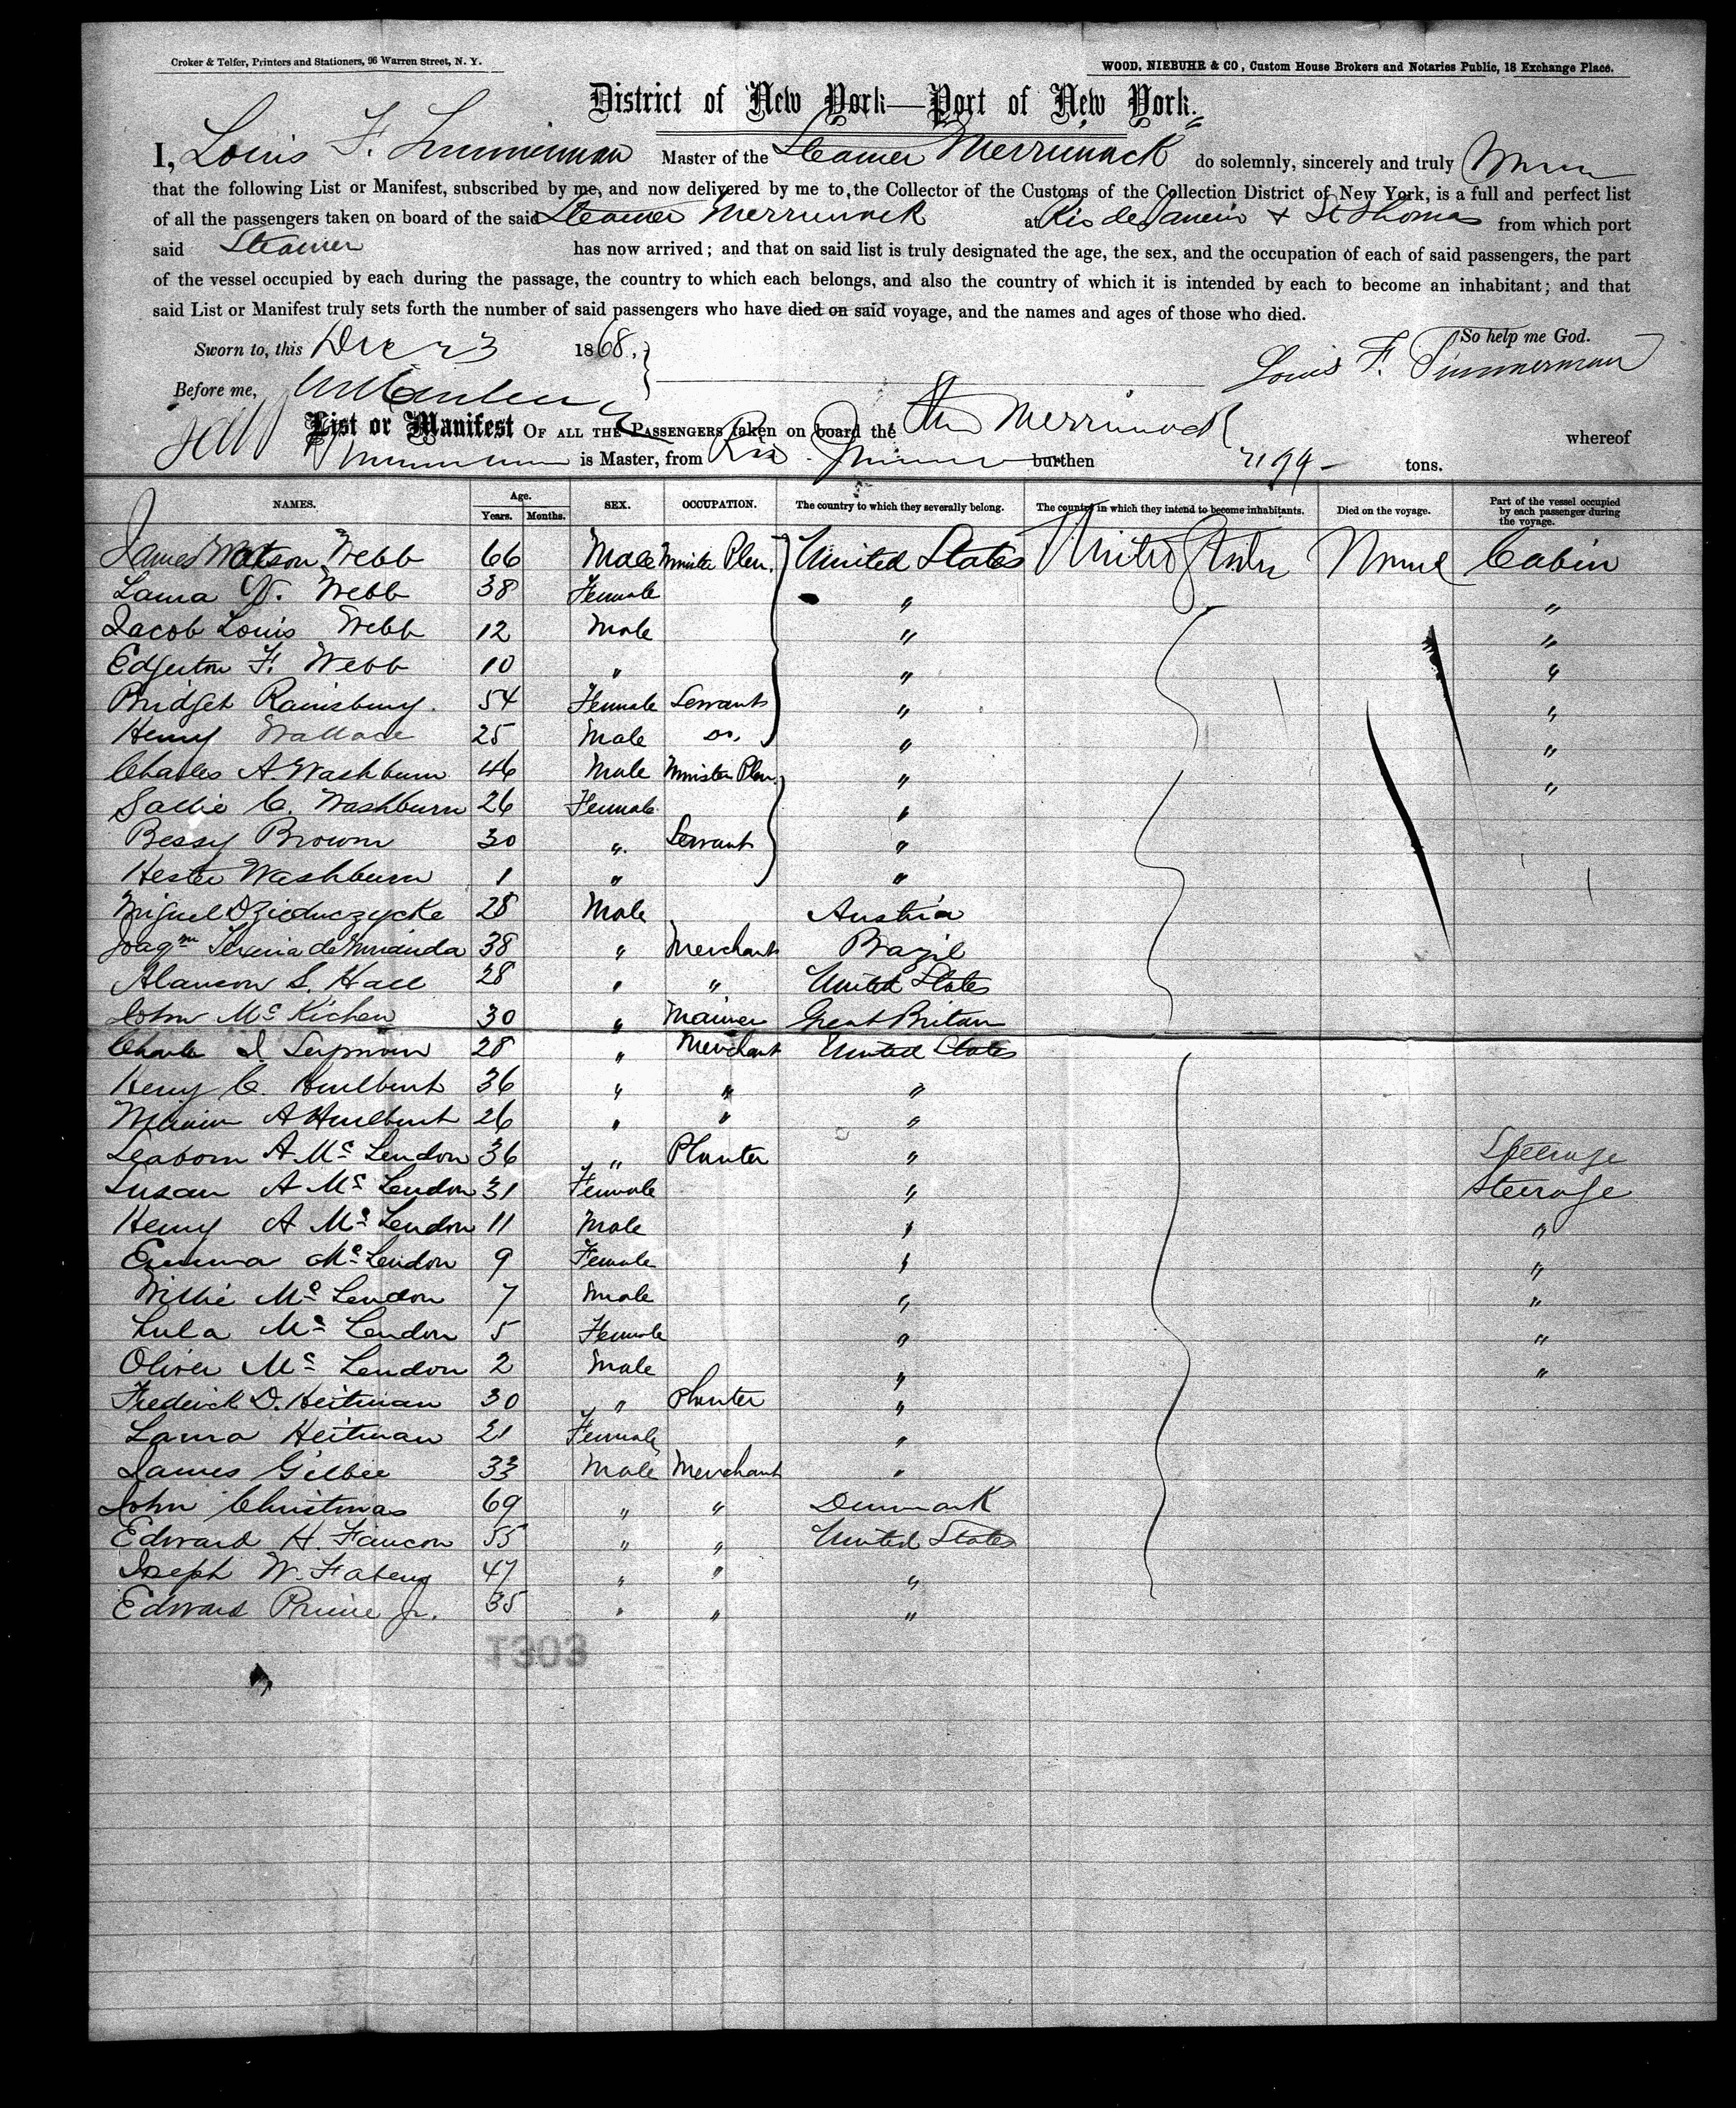 Croker & Telfer, Printers and Stationers, 96 Warren Street, N. Y. WOOD, NIEBUHR & CO, Custom House Brokers and Notaries Public, 18 Exchange Place.
District of New York—Port of New York.
I, Louis F. Timmerman Master of the Steamer "Merrimack" do solemnly, sincerely and truly
that the following List or Manifest, subscribed by me, and now delivered by me to the Collector of the Customs of the Collection District of New York, is a full and perfect list
of all the passengers taken on board of the said Steamer Merrimack at Rio de Janeiro & St Thomas from which port
said Steamer has now arrived; and that on said list is truly designated the age, the sex, and the occupation of each of said passengers, the part
of the vessel occupied by each during the passage, the country to which each belongs, and also the country of which it is intended by each to become an inhabitant; and that
said List or Manifest truly sets forth the number of said passengers who have died on said voyage, and the names and ages of those who died.
So help me God.
Sworn to, this Dec 23 1868. Louis F. Timmerman
Before me,
List or Manifest OF ALL THE PASSENGERS taken on board the Str Merrimack whereof
Timmerman is Master, from Rio Janeiro burthen tons.
NAMES. Age. Years. Months. SEX. OCCUPATION. The country to which they severally belong. The country in which they intend to become inhabitants. Died on the voyage. Part of the vessel occupied by each passenger during the voyage.
James Watson Webb 66 Male Minister Plen. United States United States None Cabin
Laura V. Webb 38 Female " "
Jacob Louis Webb 12 Male " "
Edgerton F. Webb 10 " " "
Bridget Rainsbury. 54 Female Servants " "
Henry Wallace 25 Male Do. " "
Charles A. Washburn 46 Male Minister Plen. " "
Sallie C. Washburn 26 Female "
Bessy Brown 30 " Servant "
Hester Washburn 1 " "
Miguel Dzieduczycke 28 Male Austria
Joaqm Pereira de Miranda 38 " Merchant Brazil
Alanson S. Hall 28 " " United States
John McKichen 30 " Mariner Great Britain
Charles I. Seymour 28 " Merchant United States
Henry C. Hurlburt 36 " " "
A Hurlburt 26 " " "
Seaborn A. McLendon 36 " " Planter " Steerage
Susan A McLendon 31 Female " Steerage
Henry A McLendon 11 Male " "
Emma McLendon 9 Female " "
Willie McLendon 7 Male " "
Lula McLendon 5 Female " "
Oliver McLendon 2 Male " "
Frederick D. Heitman 30 " Planter "
Laura Heitman 21 Female "
James Gilbee 33 Male Merchant "
John Christmas 69 " " Denmark
Edward H. Faucon 55 " " United States
Joseph W. Fabens 47 " " "
Edward Prime Jr. 35 " " "
T303